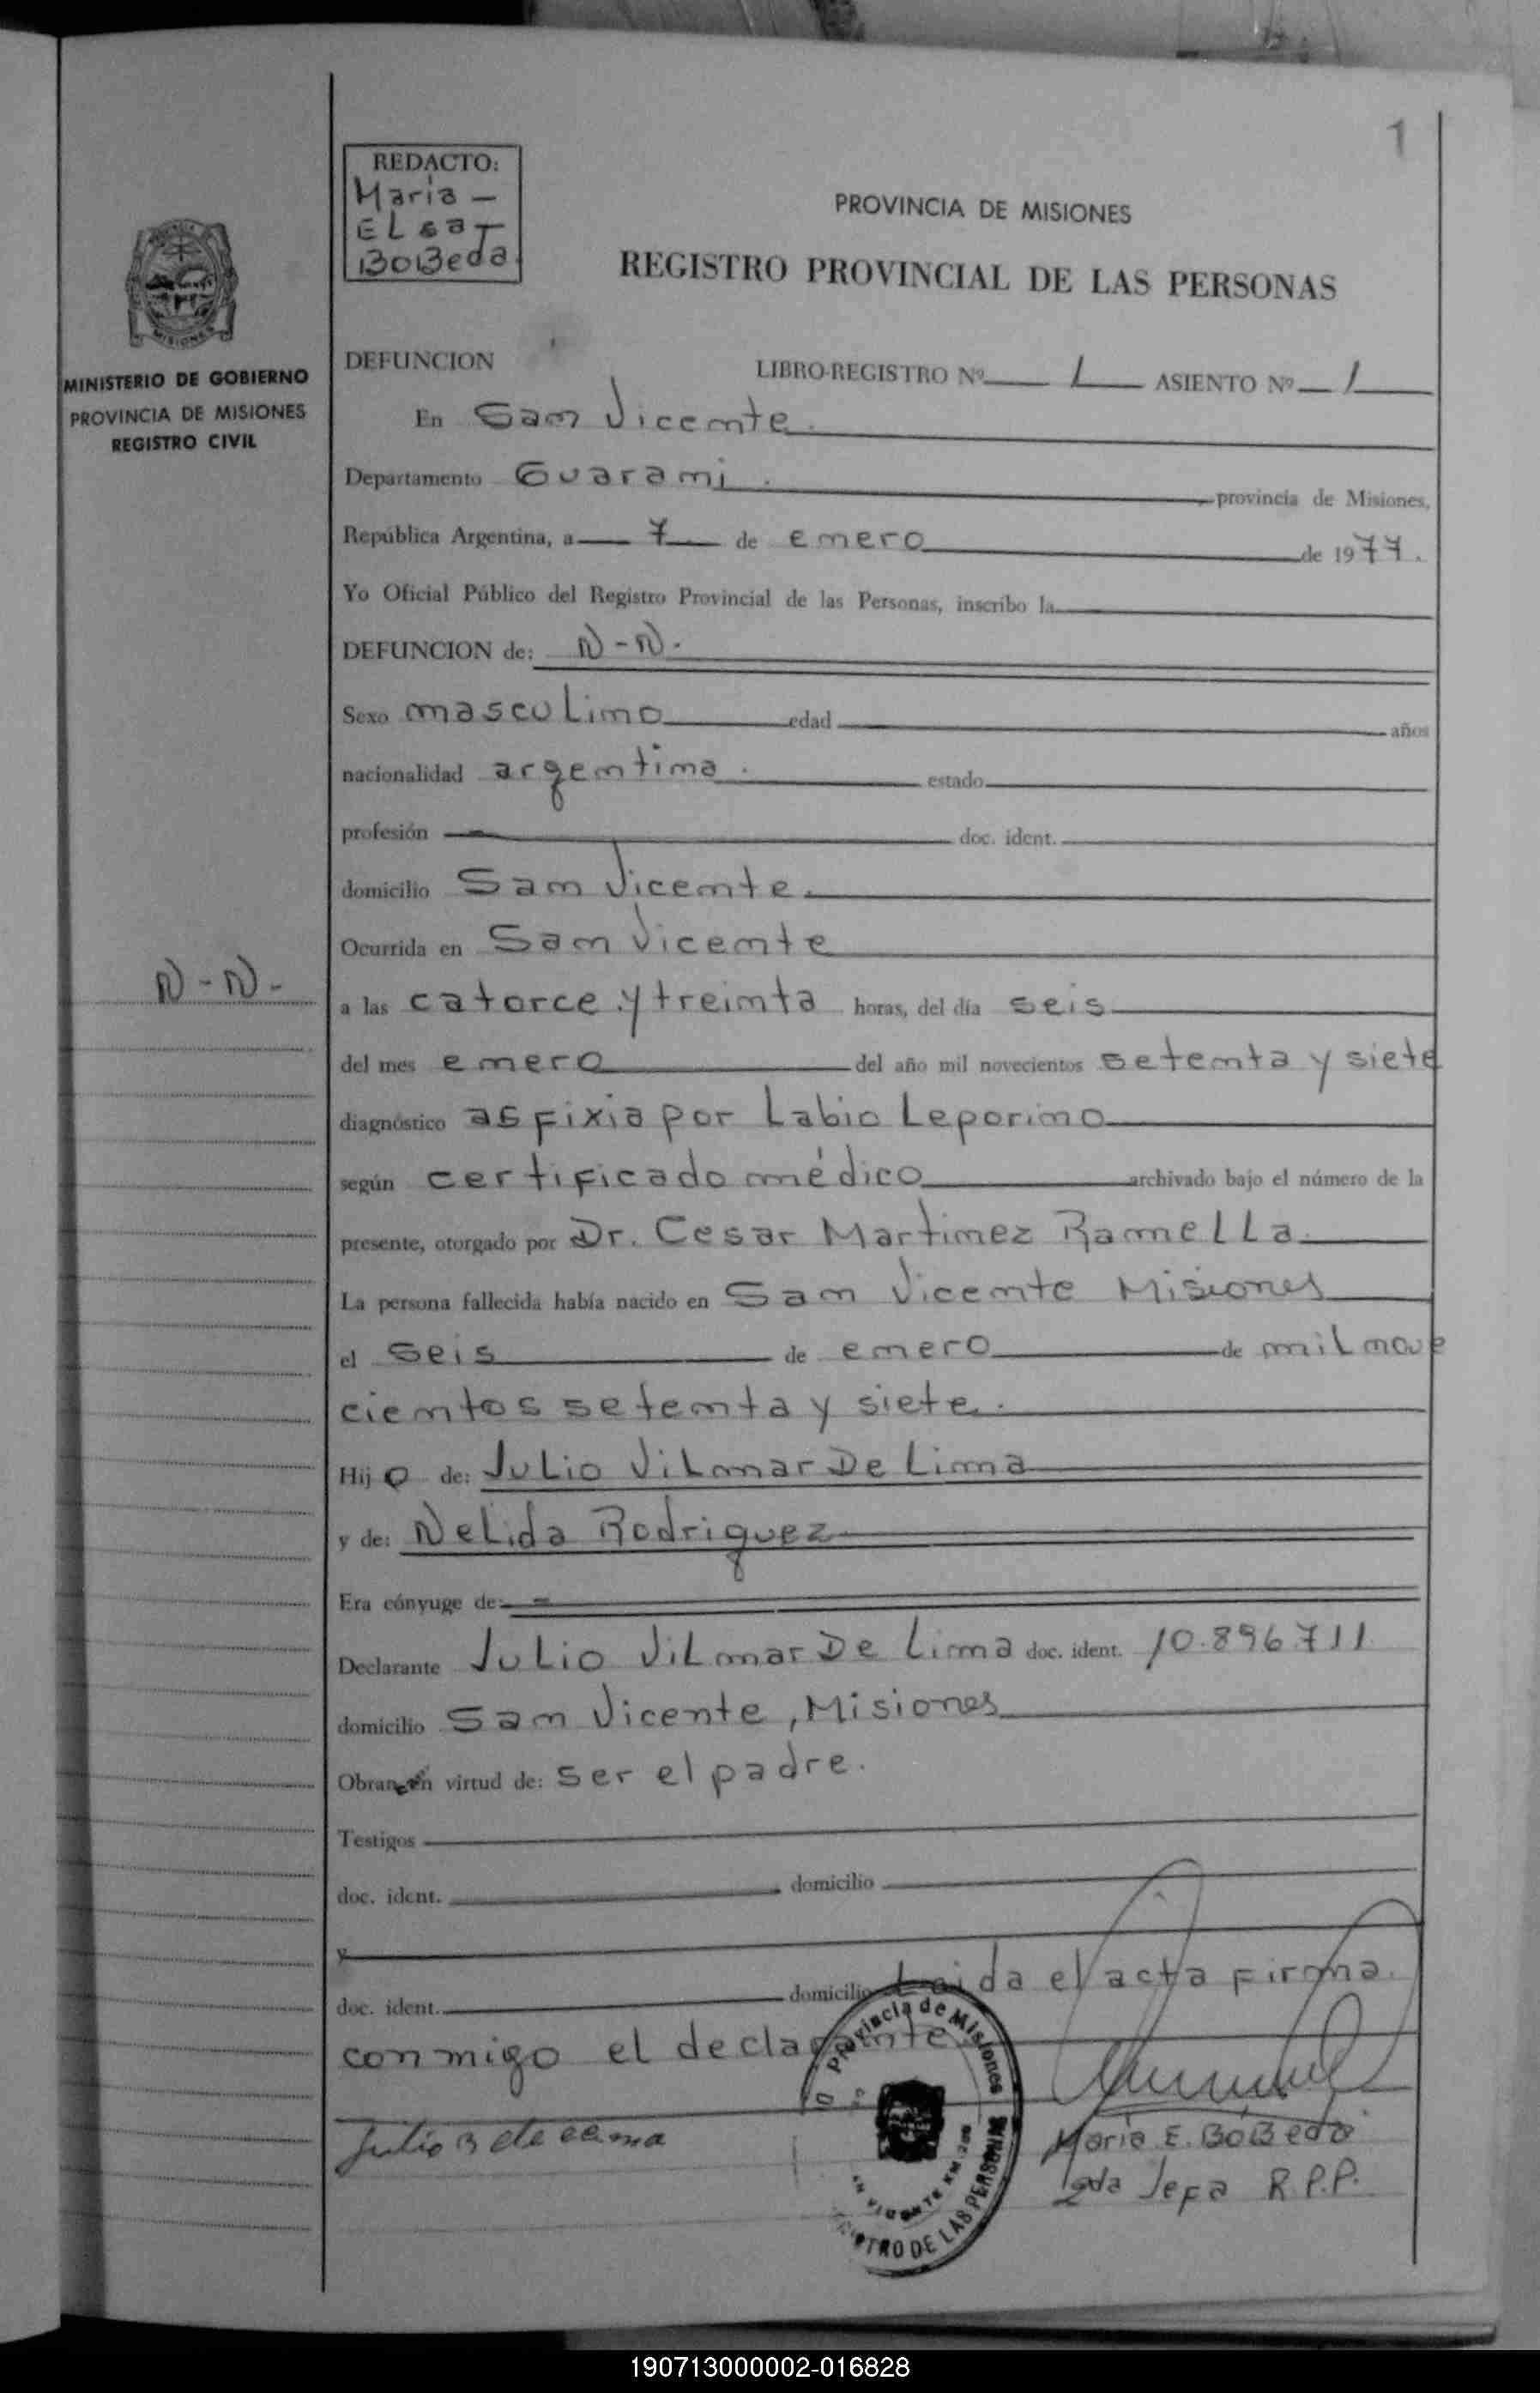 1
REDACTO:
Maria -
ELsa T
BoBeda
PROVINCIA DE MISIONES
REGISTRO PROVINCIAL DE LAS PERSONAS
MISIONES
MINISTERIO DE GOBIERNO
PROVINCIA DE MISIONES
REGISTRO CIVIL
DEFUNCION LIBRO-REGISTRO Nº 1 ASIENTO Nº 1
En San Vicente.
Departamento Guarani. provincia de Misiones,
República Argentina, a 7 de enero de 1977.
Yo Oficial Público del Registro Provincial de las Personas, inscribo la
DEFUNCION de: N-N.
Sexo masculino edad años
nacionalidad argentina. estado
profesión - doc. ident.
domicilio San Vicente.
Ocurrida en San Vicente
N-N-
a las catorce y treinta horas, del día seis
del mes enero del año mil novecientos setenta y siete
diagnóstico asfixia por Labio Leporino
según certificado médico archivado bajo el número de la
presente, otorgado por Dr. Cesar Martinez Ramella.
La persona fallecida había nacido en San Vicente Misiones
el seis de enero de mil nove
cientos setenta y siete.
Hijo de: Julio Vilmar De Lima
y de: Nelida Rodriguez
Era cónyuge de: -
Declarante Julio Vilmar De Lima doc. ident. 10.896.711
domicilio San Vicente, Misiones
Obran en virtud de: ser el padre.
Testigos
doc. ident. domicilio
y
doc. ident. domicilio Leida el acta firma
conmigo el declarante
Provincia de Misiones
REGISTRO DE LAS PERSONAS
Julio
Maria E. BoBeda
2da Jefa R.P.P.
190713000002-016828